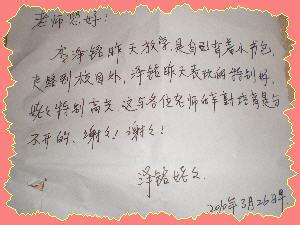 老师您好:
李泽铭昨天放学是自己背着小书包,
走到校门外,泽铭昨天表现的特别好,
姥々特别高兴 这与各位老师的辛勤培育是分
不开的、谢々!谢々!
泽铭姥々
2010年3月26日早